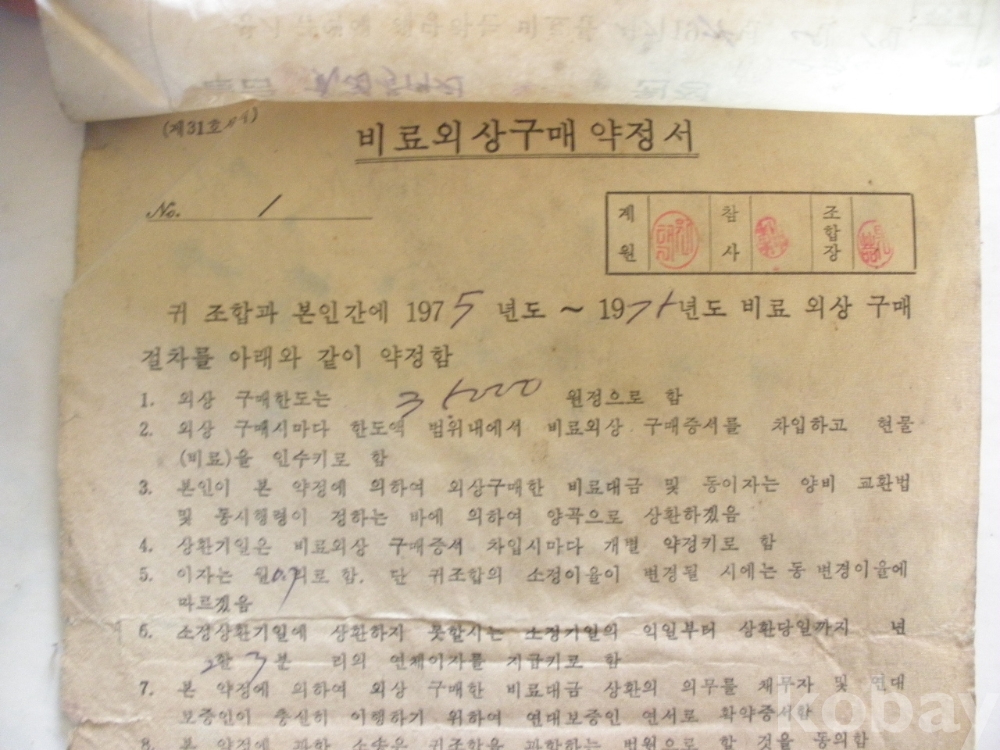 (제31호
비료외상구매약정서
No. 1
계원 참사 조합장
귀 조합과 본인간에 1975년도 ~ 19 년도 비료 외상 구매
절차를 아래와 같이 약정함
1. 외상 구매한도는 원정으로 함
2. 외상 구매시마다 한도액 범위내에서 비료외상 구매증서를 차입하고 현물
(비료)을 인수키로 함
3. 본인이 본 약정에 의하여 외상구매한 비료대금 및 동이자는 양비 교환법
및 동시행령이 정하는 바에 의하여 양곡으로 상환하겠음
4. 상환기일은 비료외상 구매증서 차입시마다 개별 약정키로 함
5. 이자는 월 로 함. 단 귀조합의 소정이율이 변경될 시에는 동 변경이율에
따르겠음
6. 소정상환기일에 상환하지 못할시는 소정기일의 익일부터 상환당일까지 년
2할 3분 리의 연체이자를 지급키로 함
7. 본 약정에 의하여 외상 구매한 비료대금 상환의 의무를 채무자 및 연대
보증인이 충실히 이행하기 위하여 연대보증인 연서로 확약증서함
8. 본 약정에 관한 소송은 귀조합을 관할하는 법원으로 할 것을 동의함
kobay